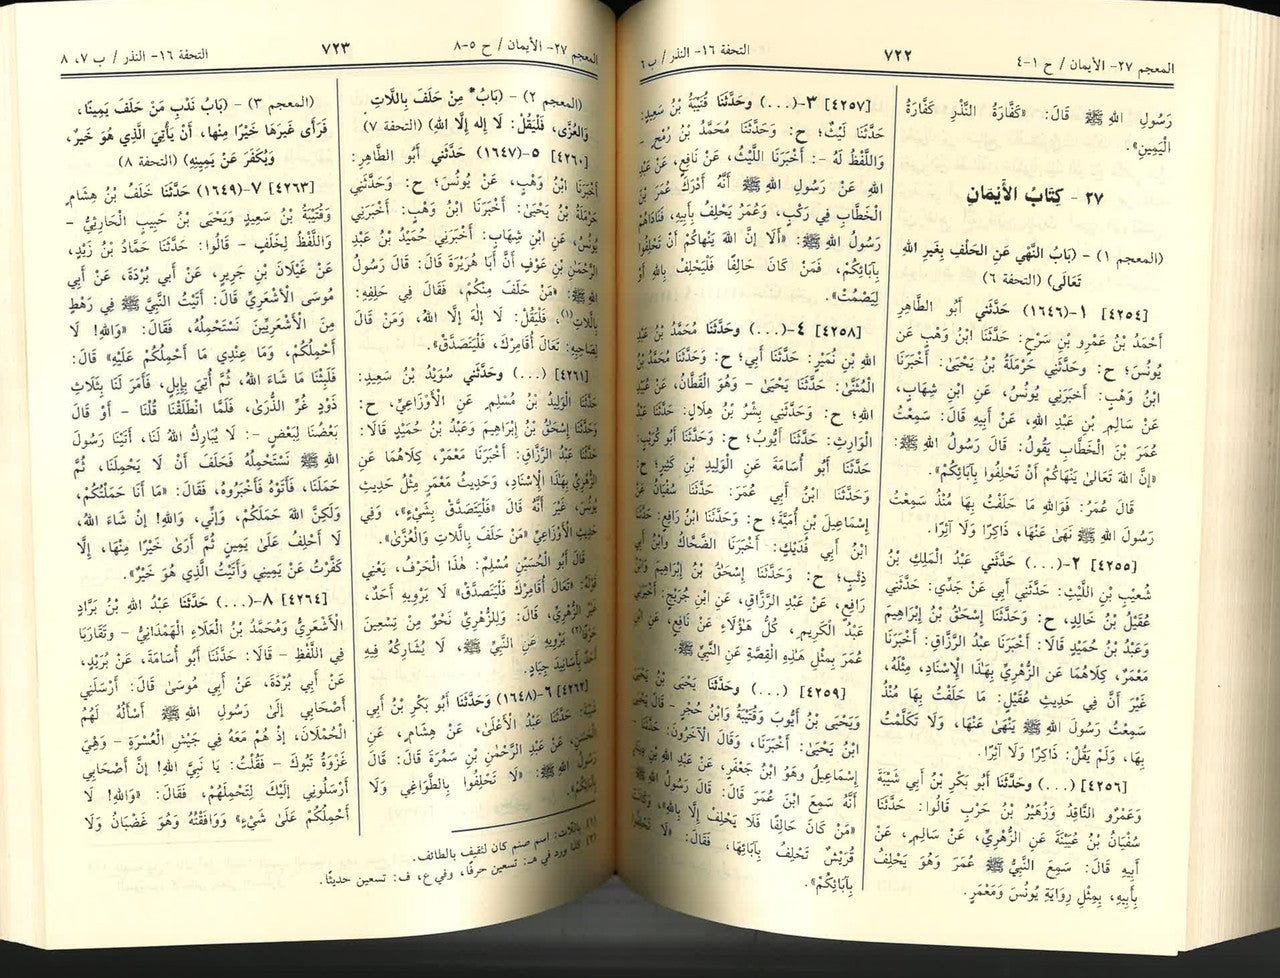 المعجم ٢٧- الأيمان / ح ١-٤
٧٢٢
التحفة ١٦- النذر / ب ٦
رَسُولِ اللهِ ﷺ قَالَ: «كَفَّارَةُ النَّذْرِ كَفَّارَةُ
الْيَمِينِ».
٢٧ - كِتَابُ الأَيْمَانِ
(المعجم ١) - (بَابُ النَّهْيِ عَنِ الحَلْفِ بِغَيرِ اللهِ
تَعَالَى) (التحفة ٦)
[٤٢٥٤] ١-(١٦٤٦) حَدَّثَنِي أَبُو الطَّاهِرِ
أَحْمَدُ بْنُ عَمْرِو بْنِ سَرْحٍ: حَدَّثَنَا ابْنُ وَهْبٍ عَنْ
يُونُسَ؛ ح: وَحَدَّثَنِي حَرْمَلَةُ بْنُ يَحْيَىٰ: أَخْبَرَنَا
ابْنُ وَهْبٍ: أَخْبَرَنِي يُونُسُ، عَنِ ابْنِ شِهَابٍ،
عَنْ سَالِمِ بْنِ عَبْدِ اللهِ، عَنْ أَبِيهِ قَالَ: سَمِعْتُ
عُمَرَ بْنَ الْخَطَّابِ يَقُولُ: قَالَ رَسُولُ اللهِ ﷺ:
«إِنَّ اللهَ تَعَالَىٰ يَنْهَاكُمْ أَنْ تَحْلِفُوا بِآبَائِكُمْ».
قَالَ عُمَرُ: فَوَاللهِ مَا حَلَفْتُ بِهَا مُنْذُ سَمِعْتُ
رَسُولَ اللهِ ﷺ نَهَىٰ عَنْهَا، ذَاكِرًا وَلَا آثِرًا.
[٤٢٥٥] ٢-(...) حَدَّثَنِي عَبْدُ الْمَلِكِ بْنُ
شُعَيْبِ بْنِ اللَّيْثِ: حَدَّثَنِي أَبِي عَنْ جَدِّي: حَدَّثَنِي
عُقَيْلُ بْنُ خَالِدٍ، ح: وَحَدَّثَنَا إِسْحٰقُ بْنُ إِبْرَاهِيمَ
وَعَبْدُ بْنُ حُمَيْدٍ قَالَا: أَخْبَرَنَا عَبْدُ الرَّزَّاقِ: أَخْبَرَنَا
مَعْمَرٌ، كِلَاهُمَا عَنِ الزُّهْرِيِّ بِهَذَا الْإِسْنَادِ، مِثْلَهُ،
غَيْرَ أَنَّ فِي حَدِيثِ عُقَيْلٍ: مَا حَلَفْتُ بِهَا مُنْذُ
سَمِعْتُ رَسُولَ اللهِ ﷺ يَنْهَىٰ عَنْهَا، وَلَا تَكَلَّمْتُ
بِهَا، وَلَمْ يَقُلْ: ذَاكِرًا وَلَا آثِرًا.
[٤٢٥٦] (...) وَحَدَّثَنَا أَبُو بَكْرِ بْنُ أَبِي شَيْبَةَ
وَعَمْرٌو النَّاقِدُ وَزُهَيْرُ بْنُ حَرْبٍ قَالُوا: حَدَّثَنَا
سُفْيَانُ بْنُ عُيَيْنَةَ عَنِ الزُّهْرِيِّ، عَنْ سَالِمٍ، عَنْ
أَبِيهِ قَالَ: سَمِعَ النَّبِيُّ ﷺ عُمَرَ وَهُوَ يَحْلِفُ
بِأَبِيهِ، بِمِثْلِ رِوَايَةِ يُونُسَ وَمَعْمَرٍ.
[٤٢٥٧] ٣-(...) وحَدَّثَنَا قُتَيْبَةُ بْنُ سَعِيدٍ:
حَدَّثَنَا لَيْثٌ؛ ح: وَحَدَّثَنَا مُحَمَّدُ بْنُ رُمْحٍ -
وَاللَّفْظُ لَهُ -: أَخْبَرَنَا اللَّيْثُ، عَنْ نَافِعٍ، عَنْ عَبْدِ
اللهِ عَنْ رَسُولِ اللهِ ﷺ أَنَّهُ أَدْرَكَ عُمَرَ بْنَ
الْخَطَّابِ فِي رَكْبٍ، وَعُمَرُ يَحْلِفُ بِأَبِيهِ، فَنَادَاهُمْ
رَسُولُ اللهِ ﷺ: «أَلَا إِنَّ اللهَ يَنْهَاكُمْ أَنْ تَحْلِفُوا
بِآبَائِكُمْ، فَمَنْ كَانَ حَالِفًا فَلْيَحْلِفْ بِاللهِ أَوْ
لِيَصْمُتْ».
[٤٢٥٨] ٤-(...) وحَدَّثَنَا مُحَمَّدُ بْنُ عَبْدِ
اللهِ بْنِ نُمَيْرٍ: حَدَّثَنَا أَبِي؛ ح: وَحَدَّثَنَا مُحَمَّدُ بْنُ
الْمُثَنَّىٰ: حَدَّثَنَا يَحْيَىٰ - وَهُوَ الْقَطَّانُ، عَنْ عُبَيْدِ
اللهِ؛ ح: وَحَدَّثَنِي بِشْرُ بْنُ هِلَالٍ: حَدَّثَنَا عَبْدُ
الْوَارِثِ: حَدَّثَنَا أَيُّوبُ؛ ح: وَحَدَّثَنَا أَبُو كُرَيْبٍ:
حَدَّثَنَا أَبُو أُسَامَةَ عَنِ الْوَلِيدِ بْنِ كَثِيرٍ؛ ح:
وَحَدَّثَنَا ابْنُ أَبِي عُمَرَ: حَدَّثَنَا سُفْيَانُ عَنْ
إِسْمَاعِيلَ بْنِ أُمَيَّةَ؛ ح: وَحَدَّثَنَا ابْنُ رَافِعٍ: حَدَّثَنَا
ابْنُ أَبِي فُدَيْكٍ: أَخْبَرَنَا الضَّحَّاكُ وَابْنُ أَبِي
ذِئْبٍ؛ ح: وَحَدَّثَنَا إِسْحٰقُ بْنُ إِبْرَاهِيمَ وَابْنُ
رَافِعٍ، عَنْ عَبْدِ الرَّزَّاقِ، عَنِ ابْنِ جُرَيْجٍ: أَخْبَرَنِي
عَبْدُ الْكَرِيمِ، كُلُّ هَؤُلَاءِ عَنْ نَافِعٍ، عَنِ ابْنِ
عُمَرَ بِمِثْلِ هَذِهِ الْقِصَّةِ عَنِ النَّبِيِّ ﷺ.
[٤٢٥٩] (...) وحَدَّثَنَا يَحْيَىٰ بْنُ يَحْيَىٰ
وَيَحْيَى بْنُ أَيُّوبَ وَقُتَيْبَةُ وَابْنُ حُجْرٍ - قَالَ يَحْيَى
ابْنُ يَحْيَىٰ: أَخْبَرَنَا، وَقَالَ الْآخَرُونَ: حَدَّثَنَا -
إِسْمَاعِيلُ وَهُوَ ابْنُ جَعْفَرٍ، عَنْ عَبْدِ اللهِ بْنِ دِينَارٍ
أَنَّهُ سَمِعَ ابْنَ عُمَرَ قَالَ: قَالَ رَسُولُ اللهِ ﷺ:
«مَنْ كَانَ حَالِفًا فَلَا يَحْلِفْ إِلَّا بِاللهِ»، وَكَانَتْ
قُرَيْشٌ تَحْلِفُ بِآبَائِهَا، فَقَالَ: «لَا تَحْلِفُوا
بِآبَائِكُمْ».
المعجم ٢٧- الأيمان / ح ٥-٨
٧٢٣
التحفة ١٦- النذر / ب ٧، ٨
(المعجم ٢) - (بَابُ* مَنْ حَلَفَ بِاللَّاتِ
وَالعُزَّى، فَلْيَقُلْ: لَا إِله إِلَّا اللهُ) (التحفة ٧)
[٤٢٦٠] ٥-(١٦٤٧) حَدَّثَنِي أَبُو الطَّاهِرِ:
أَخْبَرَنَا ابْنُ وَهْبٍ، عَنْ يُونُسَ؛ ح: وَحَدَّثَنِي
حَرْمَلَةُ بْنُ يَحْيَىٰ: أَخْبَرَنَا ابْنُ وَهْبٍ: أَخْبَرَنِي
يُونُسُ، عَنِ ابْنِ شِهَابٍ: أَخْبَرَنِي حُمَيْدُ بْنُ عَبْدِ
الرَّحْمٰنِ بْنِ عَوْفٍ أَنَّ أَبَا هُرَيْرَةَ قَالَ: قَالَ رَسُولُ
اللهِ ﷺ: «مَنْ حَلَفَ مِنْكُمْ، فَقَالَ فِي حَلِفِهِ:
بِاللَّاتِ(١)، فَلْيَقُلْ: لَا إِلَهَ إِلَّا اللهُ، وَمَنْ قَالَ
لِصَاحِبِهِ: تَعَالَ أُقَامِرْكَ، فَلْيَتَصَدَّقْ».
[٤٢٦١] (...) وَحَدَّثَنِي سُوَيْدُ بْنُ سَعِيدٍ:
حَدَّثَنَا الْوَلِيدُ بْنُ مُسْلِمٍ عَنِ الْأَوْزَاعِيِّ، ح:
وَحَدَّثَنَا إِسْحٰقُ بْنُ إِبْرَاهِيمَ وَعَبْدُ بْنُ حُمَيْدٍ قَالَا:
حَدَّثَنَا عَبْدُ الرَّزَّاقِ: أَخْبَرَنَا مَعْمَرٌ، كِلَاهُمَا عَنِ
الزُّهْرِيِّ بِهَذَا الْإِسْنَادِ، وَحَدِيثُ مَعْمَرٍ مِثْلُ حَدِيثِ
يُونُسَ، غَيْرَ أَنَّهُ قَالَ «فَلْيَتَصَدَّقْ بِشَيْءٍ»، وَفِي
حَدِيثِ الْأَوْزَاعِيِّ «مَنْ حَلَفَ بِاللَّاتِ وَالْعُزَّىٰ».
قَالَ أَبُو الْحُسَيْنِ مُسْلِمٌ: هَذَا الْحَرْفُ، يَعْنِي
قَوْلَهُ: «تَعَالَ أُقَامِرْكَ فَلْيَتَصَدَّقْ» لَا يَرْوِيهِ أَحَدٌ،
غَيْرُ الزُّهْرِيِّ، قَالَ: وَلِلزُّهْرِيِّ نَحْوٌ مِنْ تِسْعِينَ
حَرْفًا(٢) يَرْوِيهِ عَنِ النَّبِيِّ ﷺ، لَا يُشَارِكُهُ فِيهِ
أَحَدٌ بِأَسَانِيدَ جِيَادٍ.
[٤٢٦٢] ٦-(١٦٤٨) وَحَدَّثَنَا أَبُو بَكْرِ بْنُ أَبِي
شَيْبَةَ: حَدَّثَنَا عَبْدُ الْأَعْلَىٰ، عَنْ هِشَامٍ، عَنِ
الْحَسَنِ، عَنْ عَبْدِ الرَّحْمٰنِ بْنِ سَمُرَةَ قَالَ: قَالَ
رَسُولُ اللهِ ﷺ: «لَا تَحْلِفُوا بِالطَّوَاغِي وَلَا
بِآبَائِكُمْ».
(١) باللات: اسم صنم كان لثقيف بالطائف.
(٢) كذا ورد في هـ: تسعين حرفًا، وفي ع، ف: تسعين حديثًا.
(المعجم ٣) - (بَابُ نَدْبِ مَنْ حَلَفَ يَمِينًا،
فَرَأَى غَيرَهَا خَيْرًا مِنْهَا، أَنْ يَأْتِيَ الَّذِي هُوَ خَيرٌ،
وَيُكَفِّرَ عَنْ يَمِينِهِ) (التحفة ٨)
[٤٢٦٣] ٧-(١٦٤٩) حَدَّثَنَا خَلَفُ بْنُ هِشَامٍ
وَقُتَيْبَةُ بْنُ سَعِيدٍ وَيَحْيَى بْنُ حَبِيبٍ الْحَارِثِيُّ -
وَاللَّفْظُ لِخَلَفٍ - قَالُوا: حَدَّثَنَا حَمَّادُ بْنُ زَيْدٍ،
عَنْ غَيْلَانَ بْنِ جَرِيرٍ، عَنْ أَبِي بُرْدَةَ، عَنْ أَبِي
مُوسَى الْأَشْعَرِيِّ قَالَ: أَتَيْتُ النَّبِيَّ ﷺ فِي رَهْطٍ
مِنَ الْأَشْعَرِيِّينَ نَسْتَحْمِلُهُ، فَقَالَ: «وَاللهِ! لَا
أَحْمِلُكُمْ، وَمَا عِنْدِي مَا أَحْمِلُكُمْ عَلَيْهِ» قَالَ:
فَلَبِثْنَا مَا شَاءَ اللهُ، ثُمَّ أُتِيَ بِإِبِلٍ، فَأَمَرَ لَنَا بِثَلَاثِ
ذَوْدٍ غُرِّ الذُّرَىٰ، فَلَمَّا انْطَلَقْنَا قُلْنَا - أَوْ قَالَ
بَعْضُنَا لِبَعْضٍ -: لَا يُبَارِكُ اللهُ لَنَا، أَتَيْنَا رَسُولَ
اللهِ ﷺ نَسْتَحْمِلُهُ فَحَلَفَ أَنْ لَا يَحْمِلَنَا، ثُمَّ
حَمَلَنَا، فَأَتَوْهُ فَأَخْبَرُوهُ، فَقَالَ: «مَا أَنَا حَمَلْتُكُمْ،
وَلَكِنَّ اللهَ حَمَلَكُمْ، وَإِنِّي، وَاللهِ! إِنْ شَاءَ اللهُ،
لَا أَحْلِفُ عَلَىٰ يَمِينٍ ثُمَّ أَرَىٰ خَيْرًا مِنْهَا، إِلَّا
كَفَّرْتُ عَنْ يَمِينِي وَأَتَيْتُ الَّذِي هُوَ خَيْرٌ».
[٤٢٦٤] ٨-(...) حَدَّثَنَا عَبْدُ اللهِ بْنُ بَرَّادٍ
الْأَشْعَرِيُّ وَمُحَمَّدُ بْنُ الْعَلَاءِ الْهَمْدَانِيُّ - وَتَقَارَبَا
فِي اللَّفْظِ - قَالَا: حَدَّثَنَا أَبُو أُسَامَةَ، عَنْ بُرَيْدٍ،
عَنْ أَبِي بُرْدَةَ، عَنْ أَبِي مُوسَىٰ قَالَ: أَرْسَلَنِي
أَصْحَابِي إِلَىٰ رَسُولِ اللهِ ﷺ أَسْأَلُهُ لَهُمُ
الْحُمْلَانَ، إِذْ هُمْ مَعَهُ فِي جَيْشِ الْعُسْرَةِ - وَهِيَ
غَزْوَةُ تَبُوكَ - فَقُلْتُ: يَا نَبِيَّ اللهِ! إِنَّ أَصْحَابِي
أَرْسَلُونِي إِلَيْكَ لِتَحْمِلَهُمْ، فَقَالَ: «وَاللهِ! لَا
أَحْمِلُكُمْ عَلَىٰ شَيْءٍ» وَوَافَقْتُهُ وَهُوَ غَضْبَانُ وَلَا